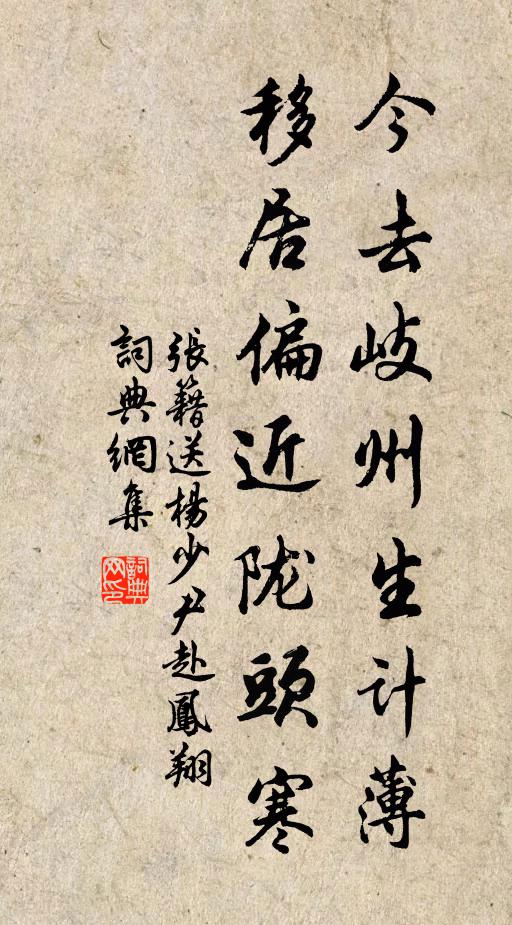 今去岐州生计薄
移居偏近陇頭寒
張籍送楊少尹赴鳳翔
詞典網集
詞典网印